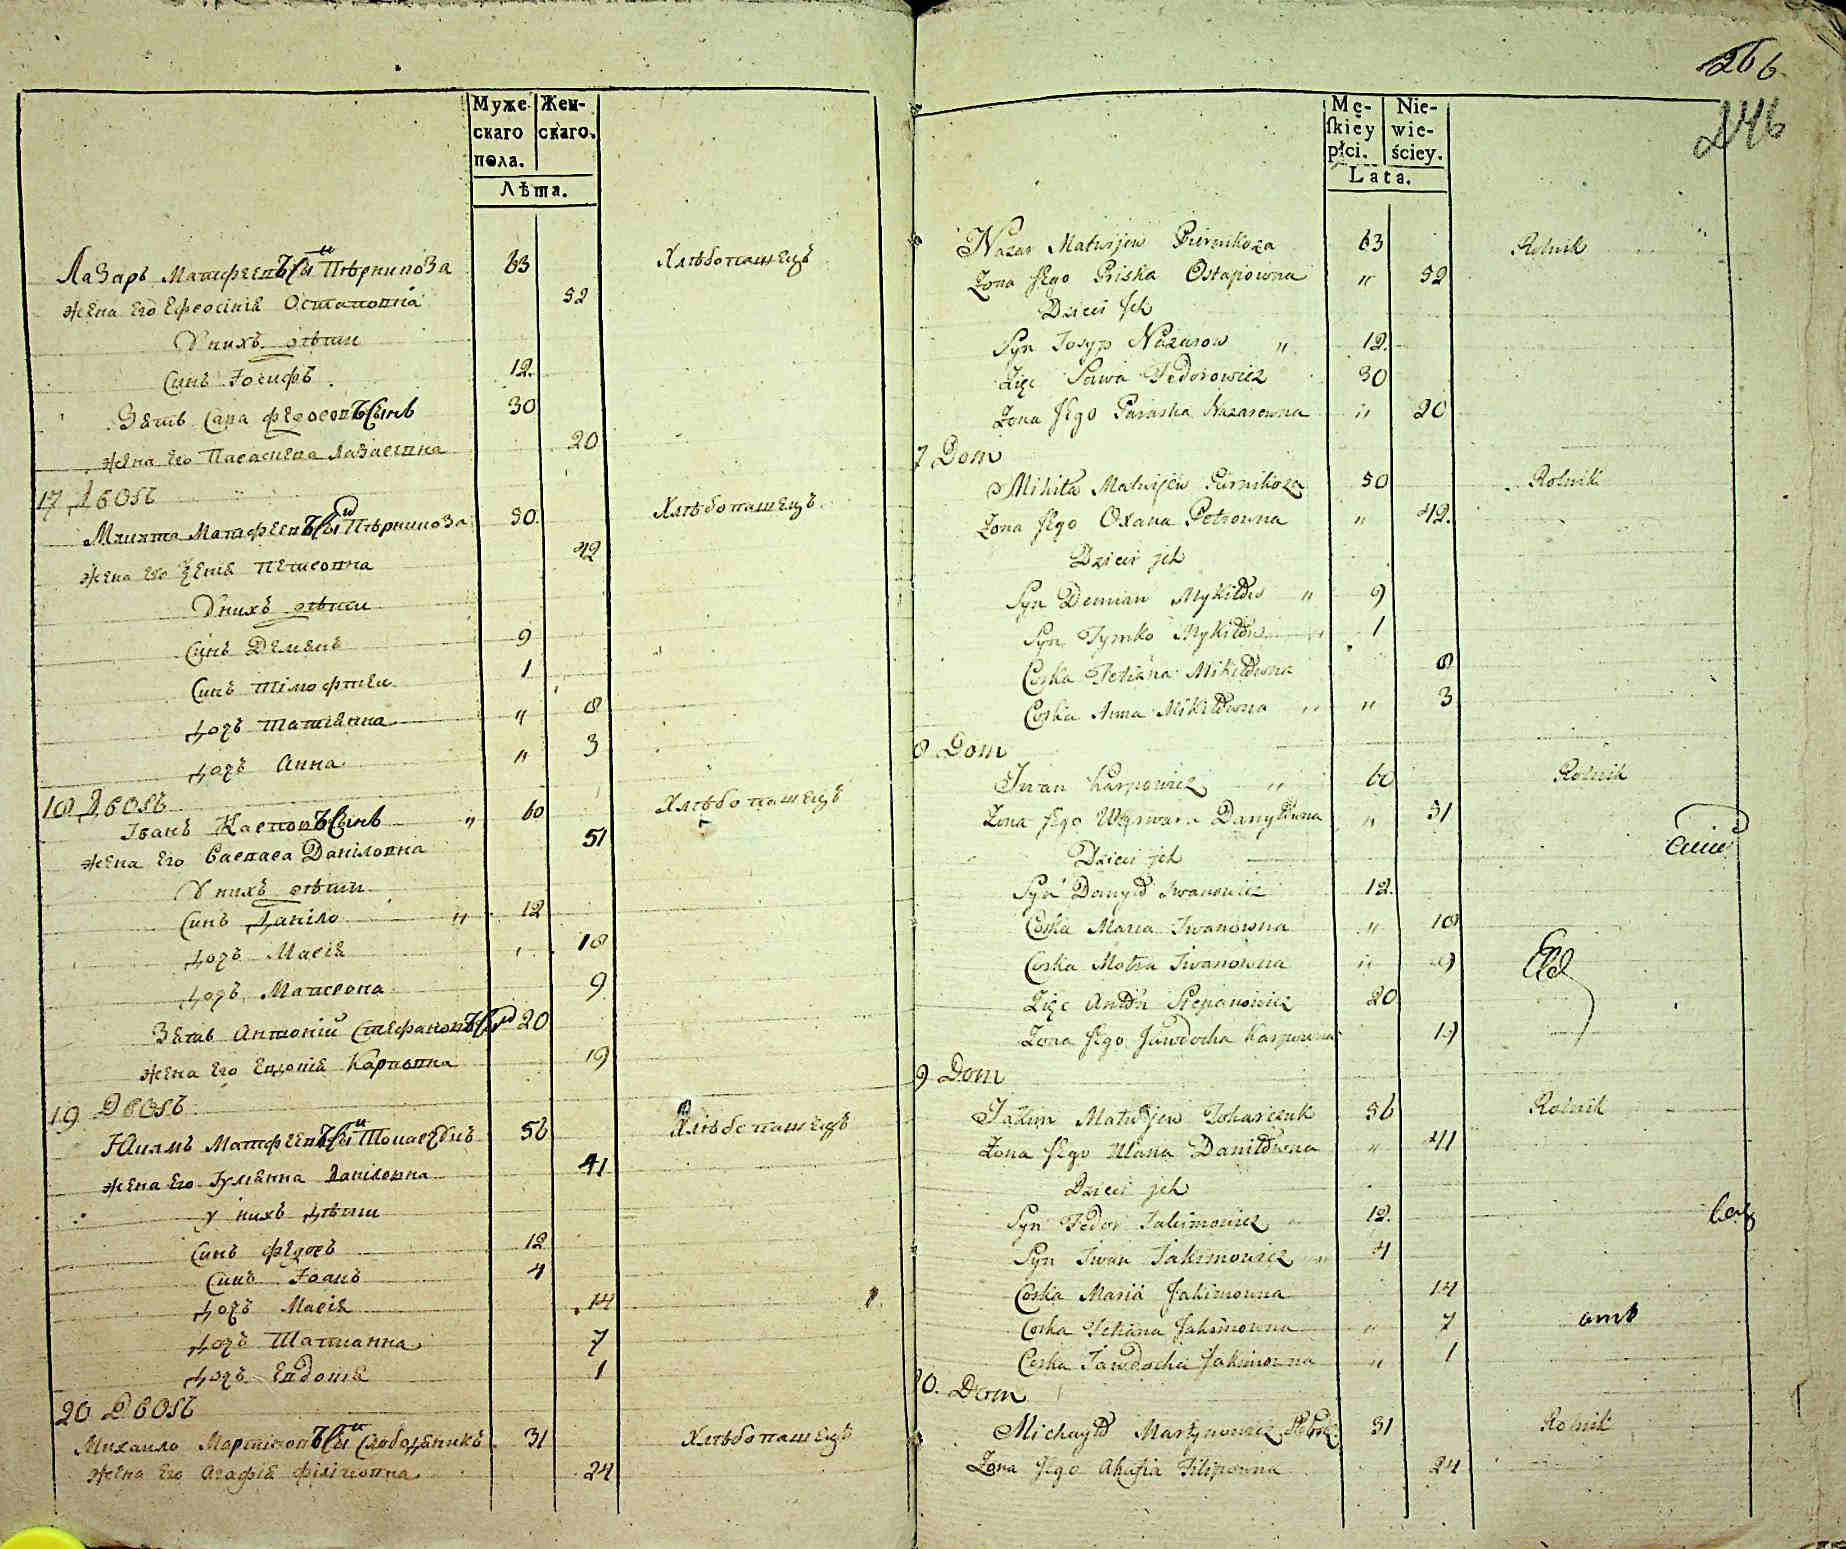 266
246
Муже Жен-
скаго скаго.
пола.
Лѣта.
Лазарь Матфеевъ Сынъ Пѣрникоза 63 Хлѣбопашецъ
жена его Ефросинія Остаповна 52
У нихъ дѣти
Синъ Іосифъ 12.
Зять Сава Федоровъ Сынъ 30
жена его Параскева Лазаровна 20
17 Дворъ
Микита Матфеевъ Сынъ Пѣрникоза 50. Хлѣбопашецъ
жена его Ксенія Петровна 42
У нихъ дѣти
Синъ Демянъ 9
Синъ Тімофтей 1
дочь Татіянна " 8
дочь Анна " 3
18 Дворъ
Іванъ Карповъ Сынъ " 60 Хлѣбопашецъ
жена его Варвара Даніловна 51
У нихъ дѣти
Синъ Даніло " 12
дочь Марія 18
дочь Матрона 9
Зять Антоній Стефановъ 20
жена его Евдокія Карповна 19
19 Дворъ
Якимъ Матфеевъ Сынъ 56 Хлѣбопашецъ
жена его Іулянна Даніловна 41
у нихъ дѣти
Синъ Федоръ 12
Синъ Іоанъ 4
дочь Марія 14
дочь Татианна 7
дочь Евдокія 1
20 Дворъ
Михаило Мартіновъ Сынъ Слободяникъ 31 Хлѣбопашецъ
жена его Агафія Філіповна 24
Mę- Nie-
ſkiéy wie-
płci. ściey.
Lata.
Nazar Matwijew Piernikoza 63 Rolnik
Żona Jego Priska Ostapowna " 52
Dzieci Jch
Syn Josyp Nazarow " 12.
Zięć Sawa Fedorowicz 30
Żona Jego Paraska Nazarowna " 20
7 Dom
Mikita Matwijew Piernikoza 50 Rolnik
Żona Jego Oxana Petrowna " 42.
Dzieci jch
Syn Demian Mykitów " 9
Syn Tymko Mykitów " 1
Corka Tetiana Mikitówna 8
Corka Anna Mikitówna " 3
8 Dom
Jwan Karpowicz " 60 Rolnik
Żona Jego Warwara Danyłówna " 51
Dzieci jch
Syn Danyło Jwanowicz 12.
Corka Maria Jwanowna " 18
Corka Motra Jwanowna " 9
Zięć Antón Stepanowicz 20
Żona Jego Jawdocha Karpowna 19
9 Dom
Jakim Matwijew Tokarczuk 56 Rolnik
Żona Jego Ulana Daniłówna " 41
Dzieci jch
Syn Fedor Jakimowicz 12.
Syn Jwan Jakimowicz " 4
Corka Maria Jakimowna 14
Corka Tetiana Jakimowna " 7
Corka Jawdocha Jakimowna " 1
0. Dom
Michayło Martynowicz 31 Rolnik
Żona Jego Ahafia Filipowna 24